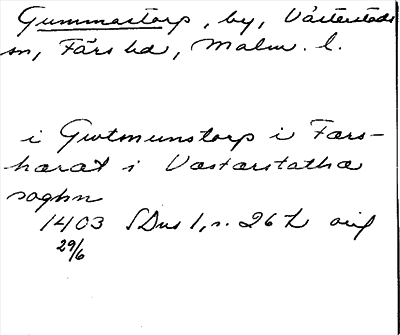 Gummastorp, by, Västerstads
sn, Färs hd, Malm. l.
i Gwtmunstorp i Færs-
haræt i Væstærstatha
soghn
1403 SDns 1, s. 267 orig
29/6